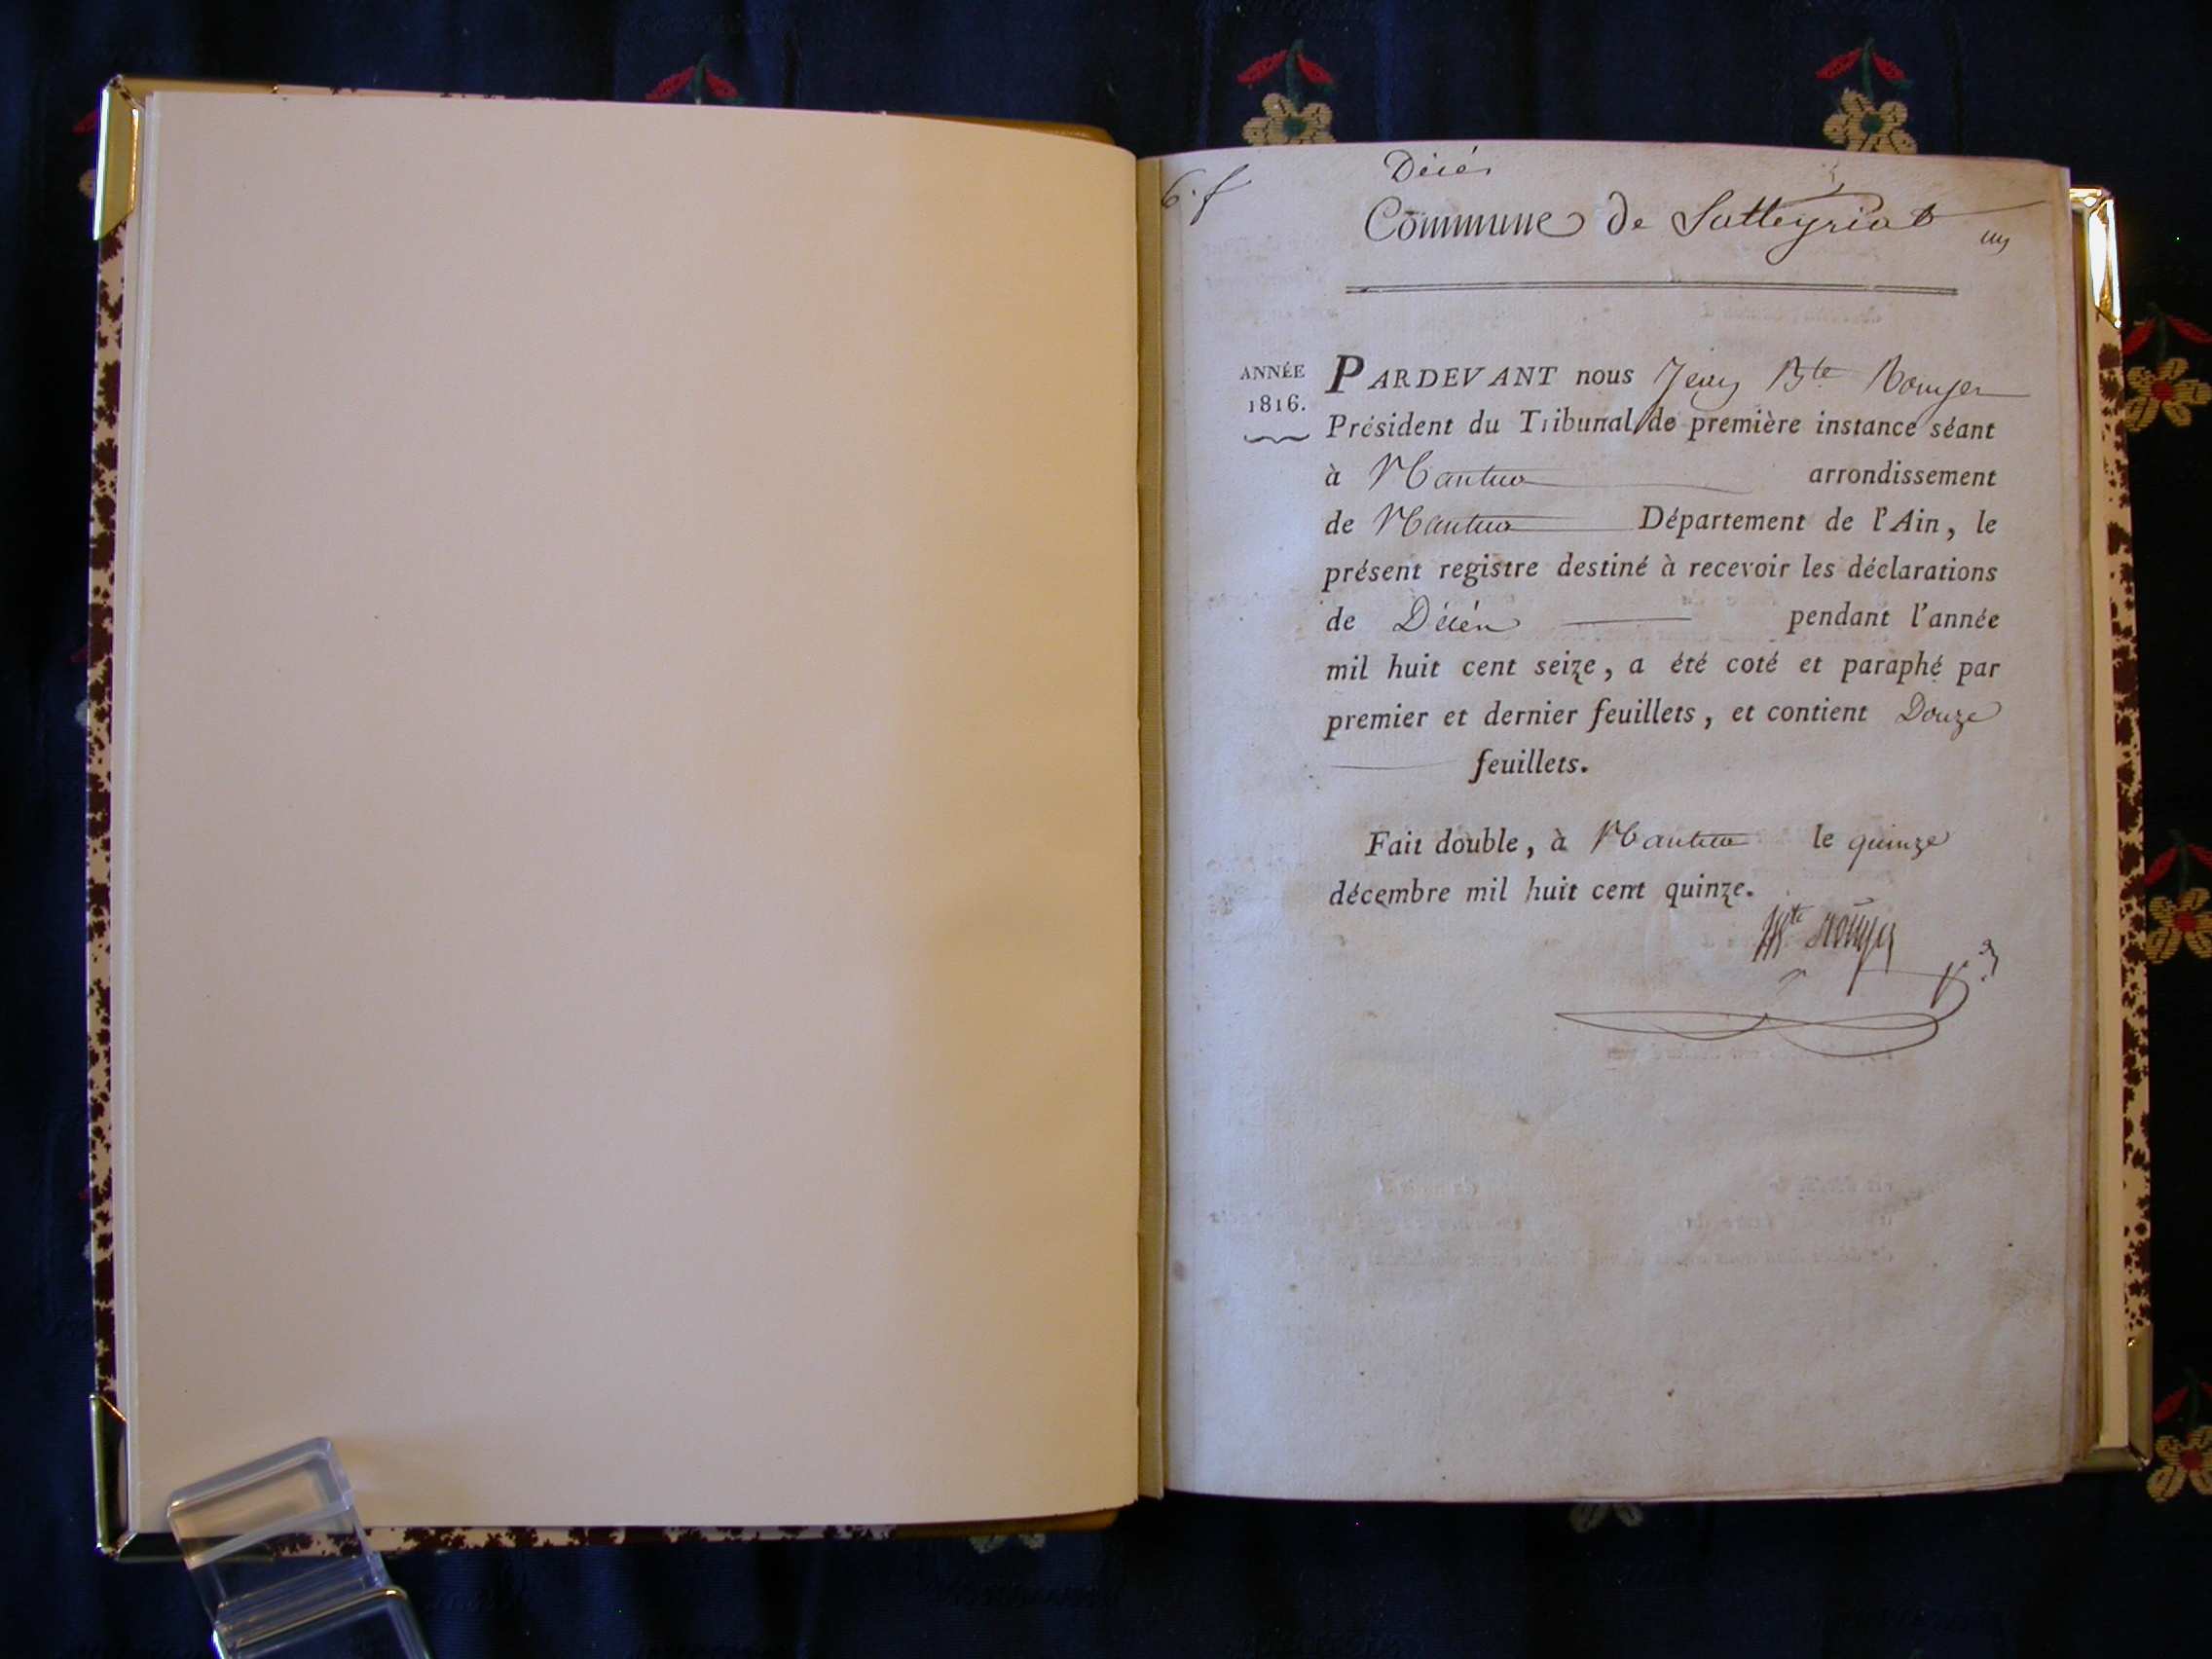 6. f
Décés
Commune de Solleyriat
un
ANNÉE
1816.
PARDEVANT nous Jean Bte Rouyer
Président du Tribunal de première instance séant
à Nantua arrondissement
de Nantua Département de l'Ain, le
présent registre destiné à recevoir les déclarations
de Décés pendant l'année
mil huit cent seize, a été coté et paraphé par
premier et dernier feuillets, et contient Douze
feuillets.
Fait double, à Nantua le quinze
décembre mil huit cent quinze.
Bte Rouyer